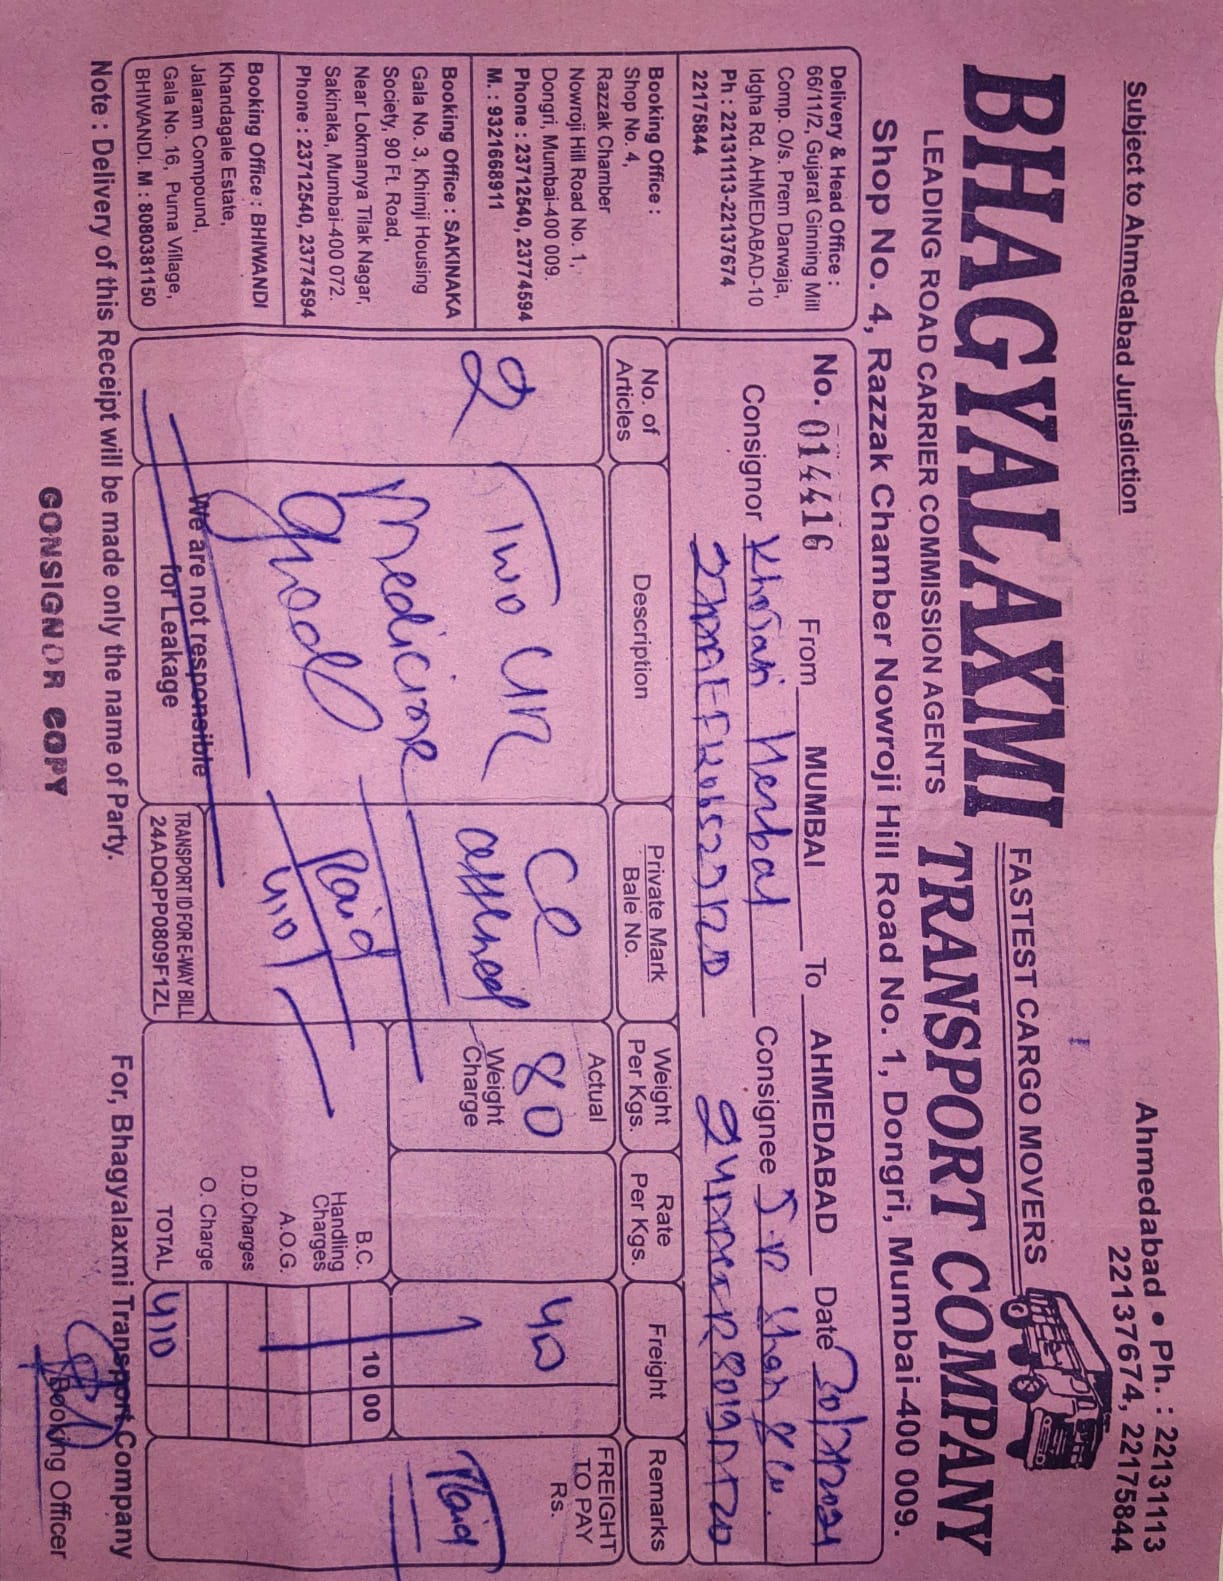 Subject to Ahmedabad Jurisdiction
Ahmedabad • Ph. : 22131113
22137674, 22175844
BHAGYALAXMI
FASTEST CARGO MOVERS
TRANSPORT COMPANY
LEADING ROAD CARRIER COMMISSION AGENTS
Shop No. 4, Razzak Chamber Nowroji Hill Road No. 1, Dongri, Mumbai-400 009.
Delivery & Head Office :
66/11/2, Gujarat Ginning Mill
Comp. O/s. Prem Darwaja,
Idgha Rd. AHMEDABAD-10
Ph : 22131113-22137674
22175844
Booking Office :
Shop No. 4,
Razzak Chamber
Nowroji Hill Road No. 1,
Dongri, Mumbai-400 009.
Phone : 23712540, 23774594
M. : 9321668911
Booking Office : SAKINAKA
Gala No. 3, Khimji Housing
Society, 90 Ft. Road,
Near Lokmanya Tilak Nagar,
Sakinaka, Mumbai-400 072.
Phone : 23712540, 23774594
Booking Office : BHIWANDI
Khandagale Estate,
Jalaram Compound,
Gala No. 16, Purna Village,
BHIWANDI. M : 8080381150
No. 014416 From MUMBAI To AHMEDABAD Date
Consignor Herbal Consignee
No. of Articles
Description
Private Mark
Bale No.
Weight Per Kgs.
Rate Per Kgs.
Freight
Remarks
2
Two
Medicine
Paid
410
Actual
80
Weight Charge
FREIGHT
TO PAY
Rs.
Paid
B.C. 10 00
Handling Charges
A.O.G.
D.D.Charges
O. Charge
TOTAL 410
We are not responsible
for Leakage
TRANSPORT ID FOR E-WAY BILL
24ADQPP0809F1ZL
For, Bhagyalaxmi Transport Company
Booking Officer
Note : Delivery of this Receipt will be made only the name of Party.
CONSIGNOR COPY